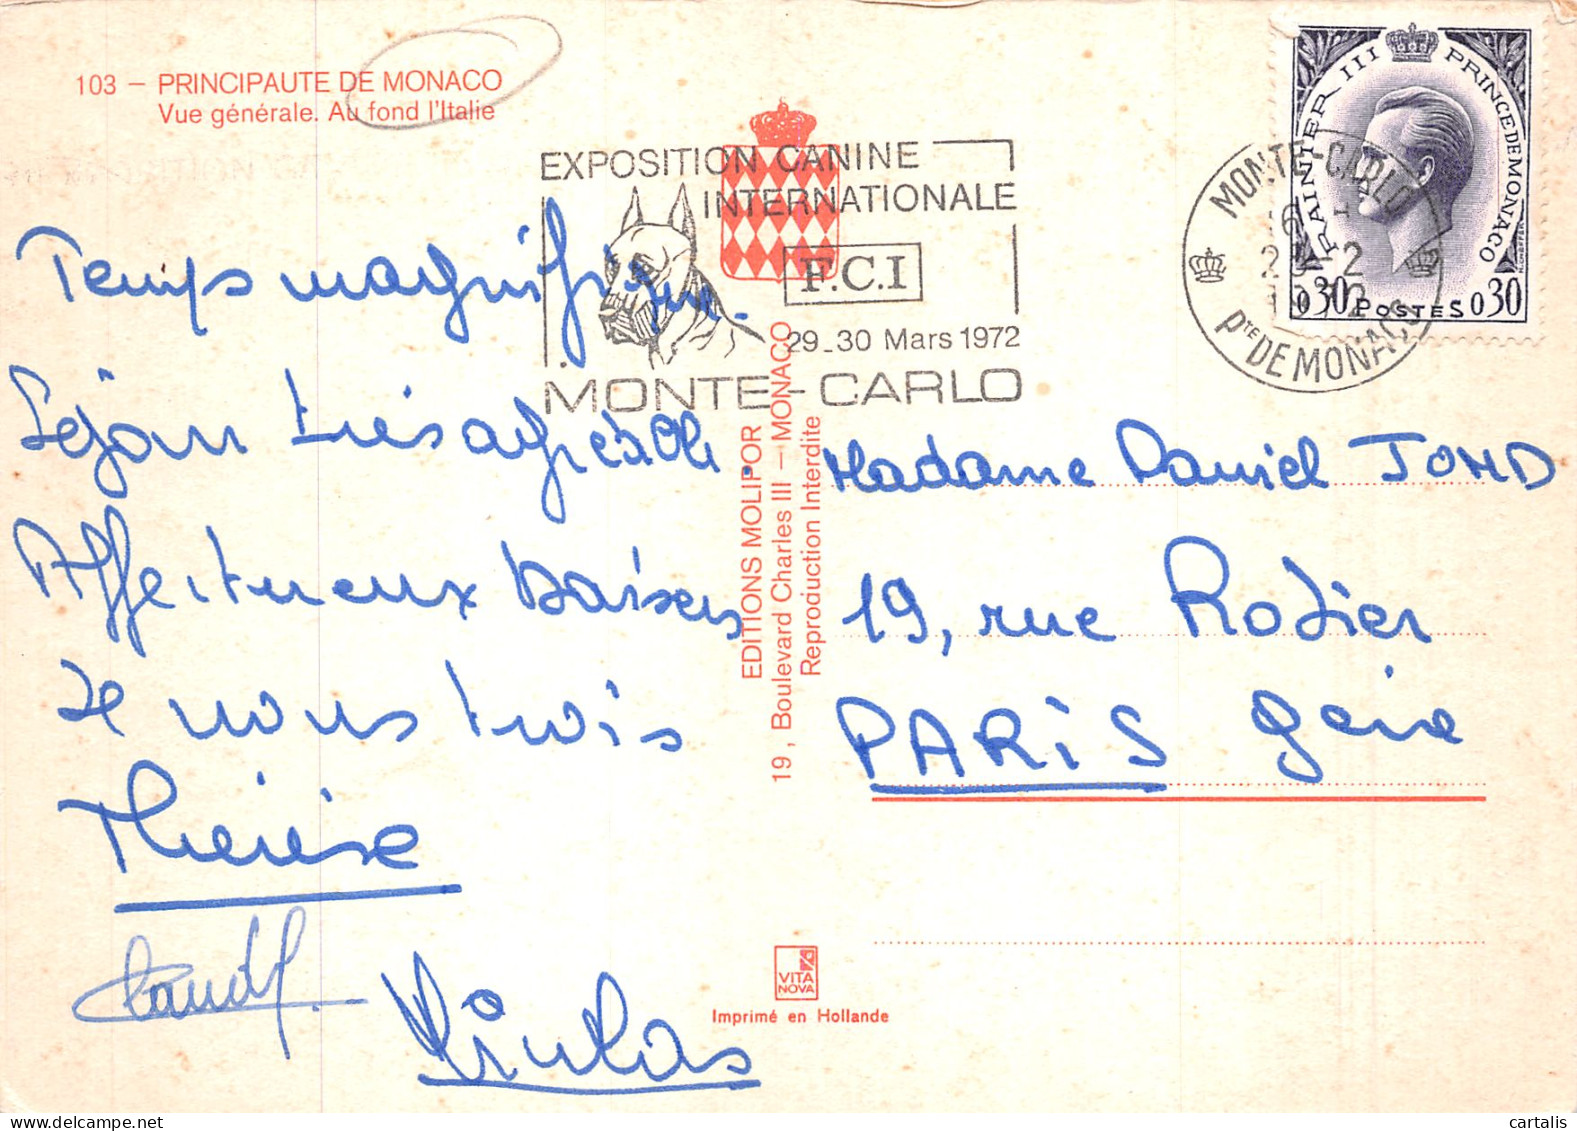 103 – PRINCIPAUTE DE MONACO
Vue générale. Au fond l'Italie
EXPOSITION CANINE
INTERNATIONALE
F.C.I
29_30 Mars 1972
MONTE-CARLO
RAINIER III PRINCE DE MONACO
0,30 POSTES 0,30
MONTE-CARLO
16 H
Pte DE MONACO
Temps magnifique.
Séjour très agréable.
Affectueux baisers
de nous trois
Thérèse
Claude
Nicolas
EDITIONS MOLIPOR
19, Boulevard Charles III – MONACO
Reproduction Interdite
Madame Daniel JOND
19, rue Rodier
PARIS 9eme
VITA
NOVA
Imprimé en Hollande
cartalis